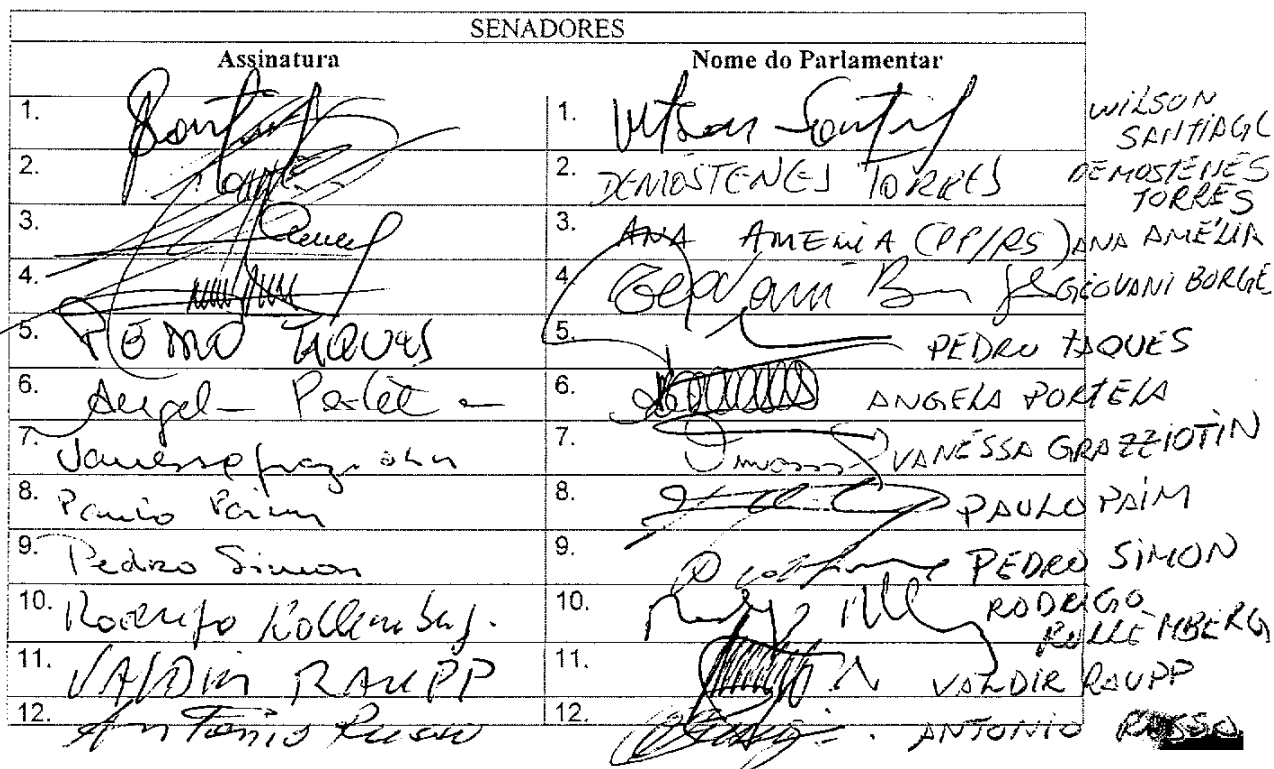 SENADORES
Assinatura Nome do Parlamentar
1. 1. WILSON
SANTIAGO
2. 2. DEMÓSTENES TORRES DEMOSTENES
TORRES
3. 3. ANA AMELIA (PP/RS) ANA AMÉLIA
4. 4. GEOVANI BORGE
5. PEDRO TAQUES 5. PEDRO TAQUES
6. Angela Portela 6. ANGELA PORTELA
7. Vanessa Grazziotin 7. VANESSA GRAZZIOTIN
8. Paulo Paim 8. PAULO PAIM
9. Pedro Simon 9. PEDRO SIMON
10. Rodrigo Rollemberg. 10. RODRIGO
ROLLEMBERG
11. VALDIR RAUPP 11. VALDIR RAUPP
12. Antonio Russo 12. ANTONIO RUSSO